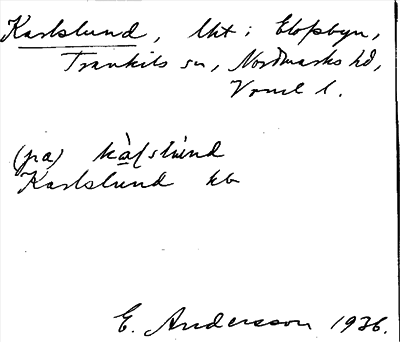 Karlslund, lht i Elofsbyn,
Trankils sn, Nordmarks hd,
Vrml l.
(pa) kàlslund
Karlslund kb
E. Andersson 1936.